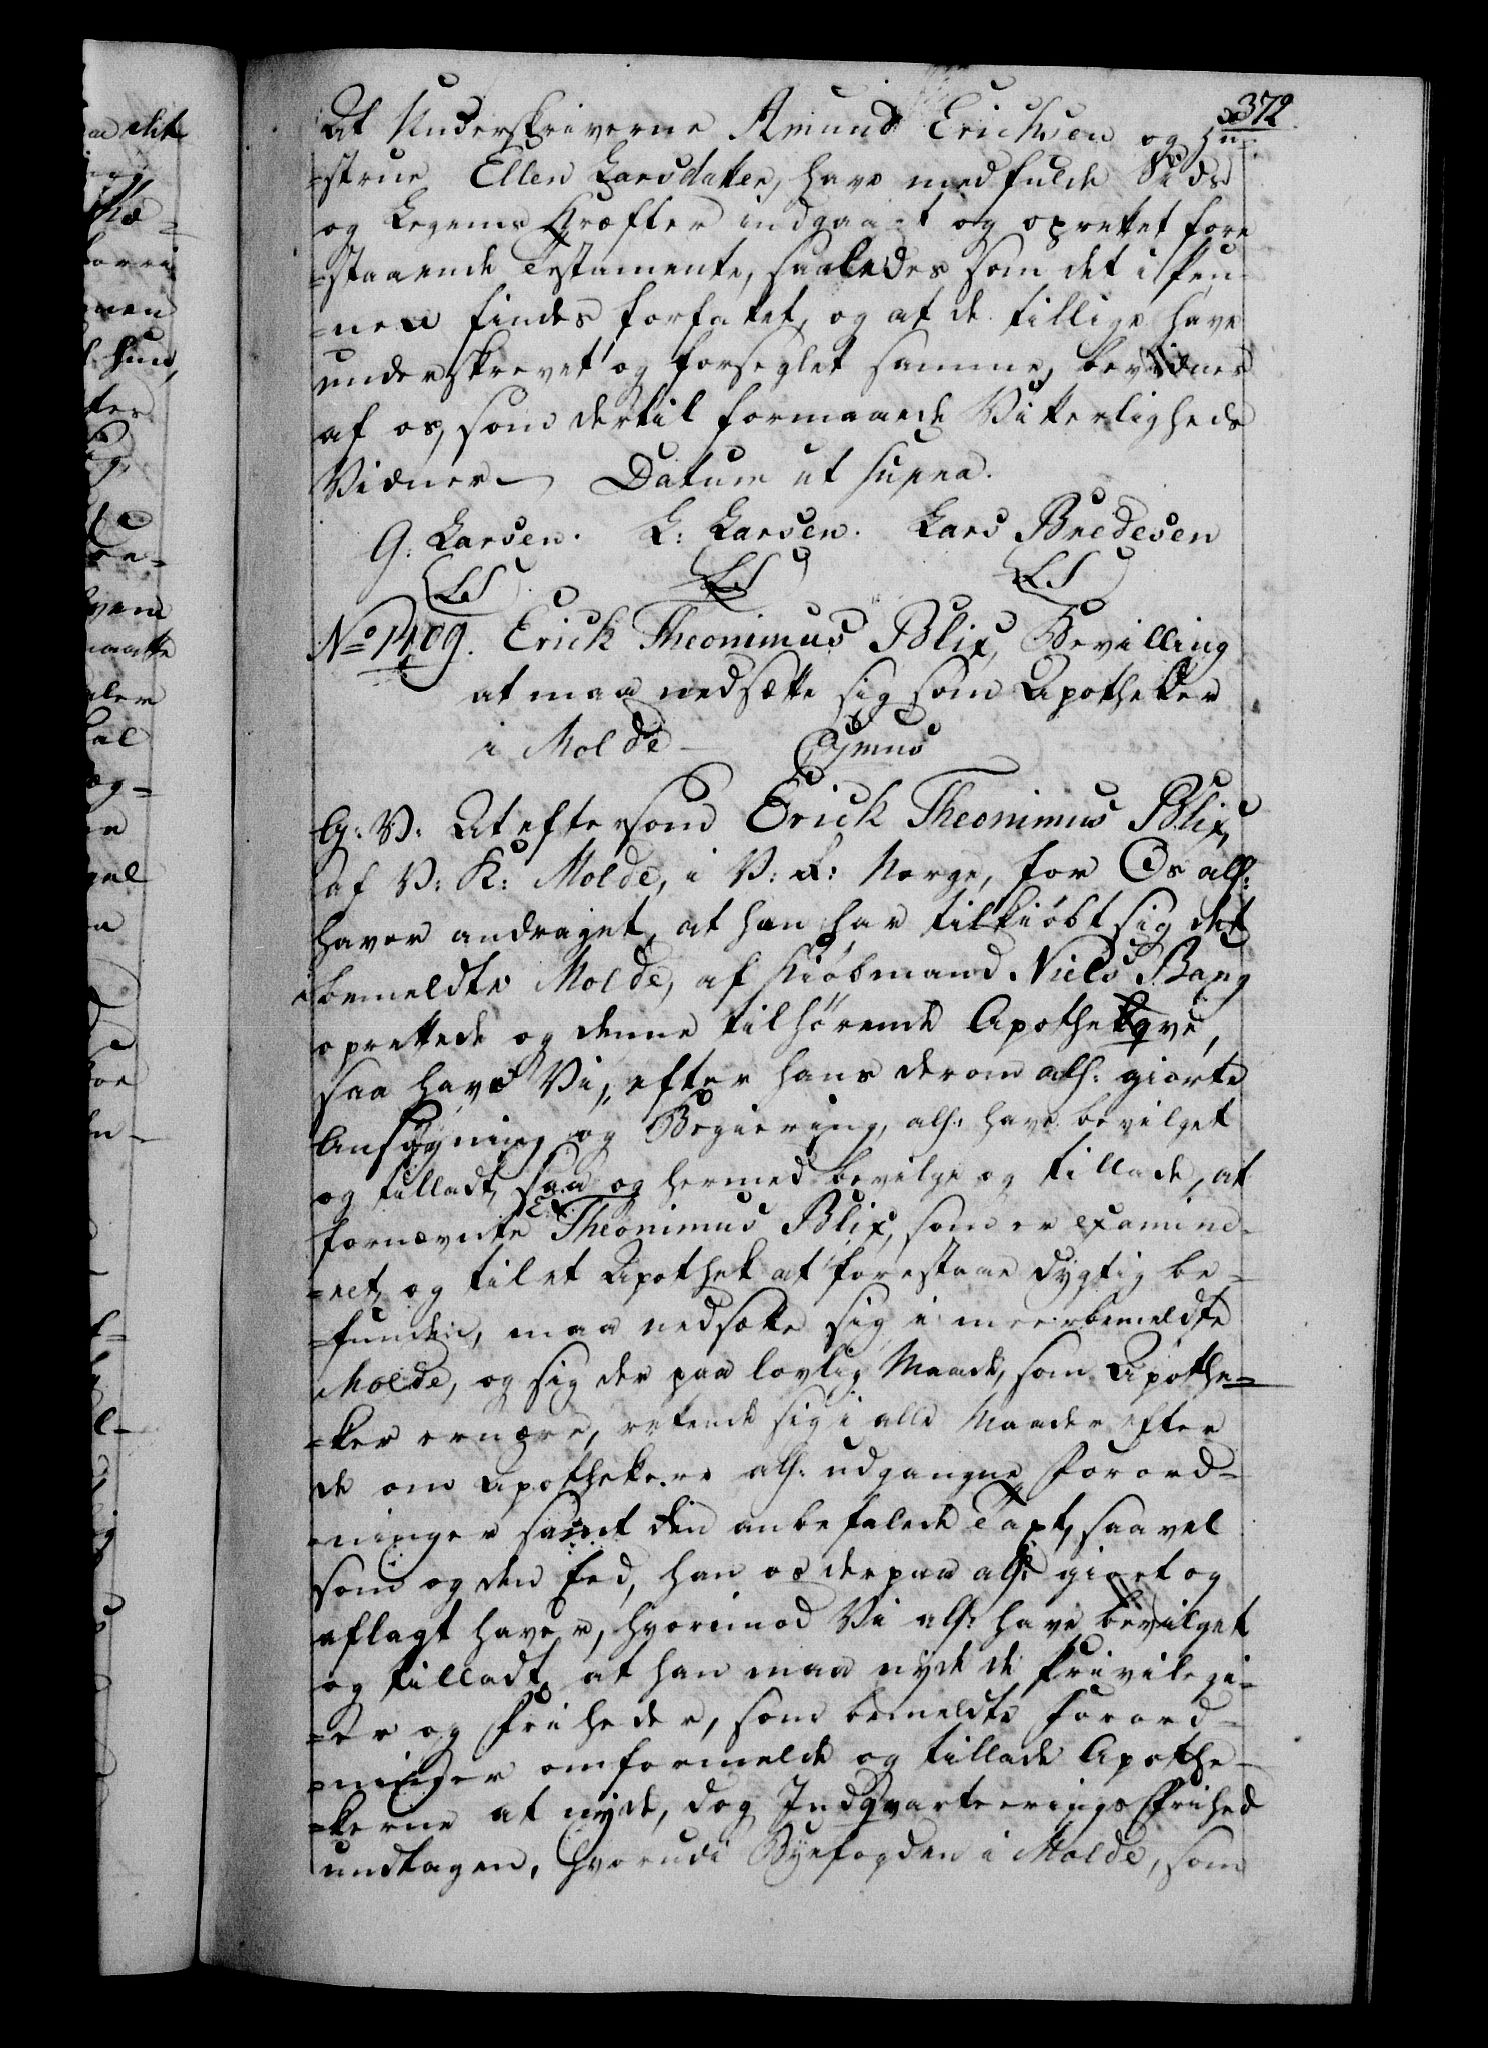 372.
At Underskriverne Amund Erichsen og Hu-
=strue Ellen Larsdatter, have med fulde Sinds
og Legems Kræfter indgaaet og oprettet fore
=staaende Testamente, saaledes som det i Pen-
=nen findes forfattet, og at de tillige have
underskrevet og forseglet samme, bevidnes
af os, som dertil formaaede Vitterligheds
Vidner. Datum ut supra.
G: Larsen. L: Larsen. Lars Bredesen
(L.S) (L.S) (L.S)
No 1409. Erick Theonimus Blix, Bevilling
at maa nedsætte sig som Apotheker
i Molde
G: V: At eftersom Erick Theonimus Blix,
af V: K: Molde, i V: R: Norge, for Os alh:
haver andraget, at han har tilkiøbt sig det
i bemeldte Molde, af Kiøbmand Niels Bang
oprettede og denne tilhørende Apotheqve,
saa have Vi, efter hans derom alh: giorte
Ansøgning og Begiering, alh: have bevilget
og tilladt, saa og hermed bevilge og tillade, at
fornævnte E: Theonimus Blix, som er examine-
=ret, og til et Apothek at forestaae dygtig be-
=funden, maa nedsætte sig i meerbemeldte
Molde, og sig der paa lovlig Maade, som Apothe=
=ker ernære, rettende sig i alle Maader efter
de om Apothekere alh: udgangne Forord-
=ninger samt den anbefalede Taxt, saavel
som og den Eed, han os derpaa alh: giort og
aflagt haver, hvorimod Vi alh: have bevilget
og tilladt, at han maa nyde de Privilegi-
=er og Friheder, som bemeldte Forord-
=ninger omformelde og tillade Apothe-
=kerne at nyde, dog Indqvarteerings Frihed
undtagen, hvorudi Byefogden i Molde, som